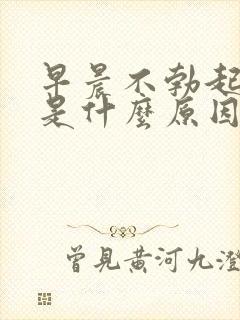 早晨不勃起
是什麼原因
曾見黃河九澄